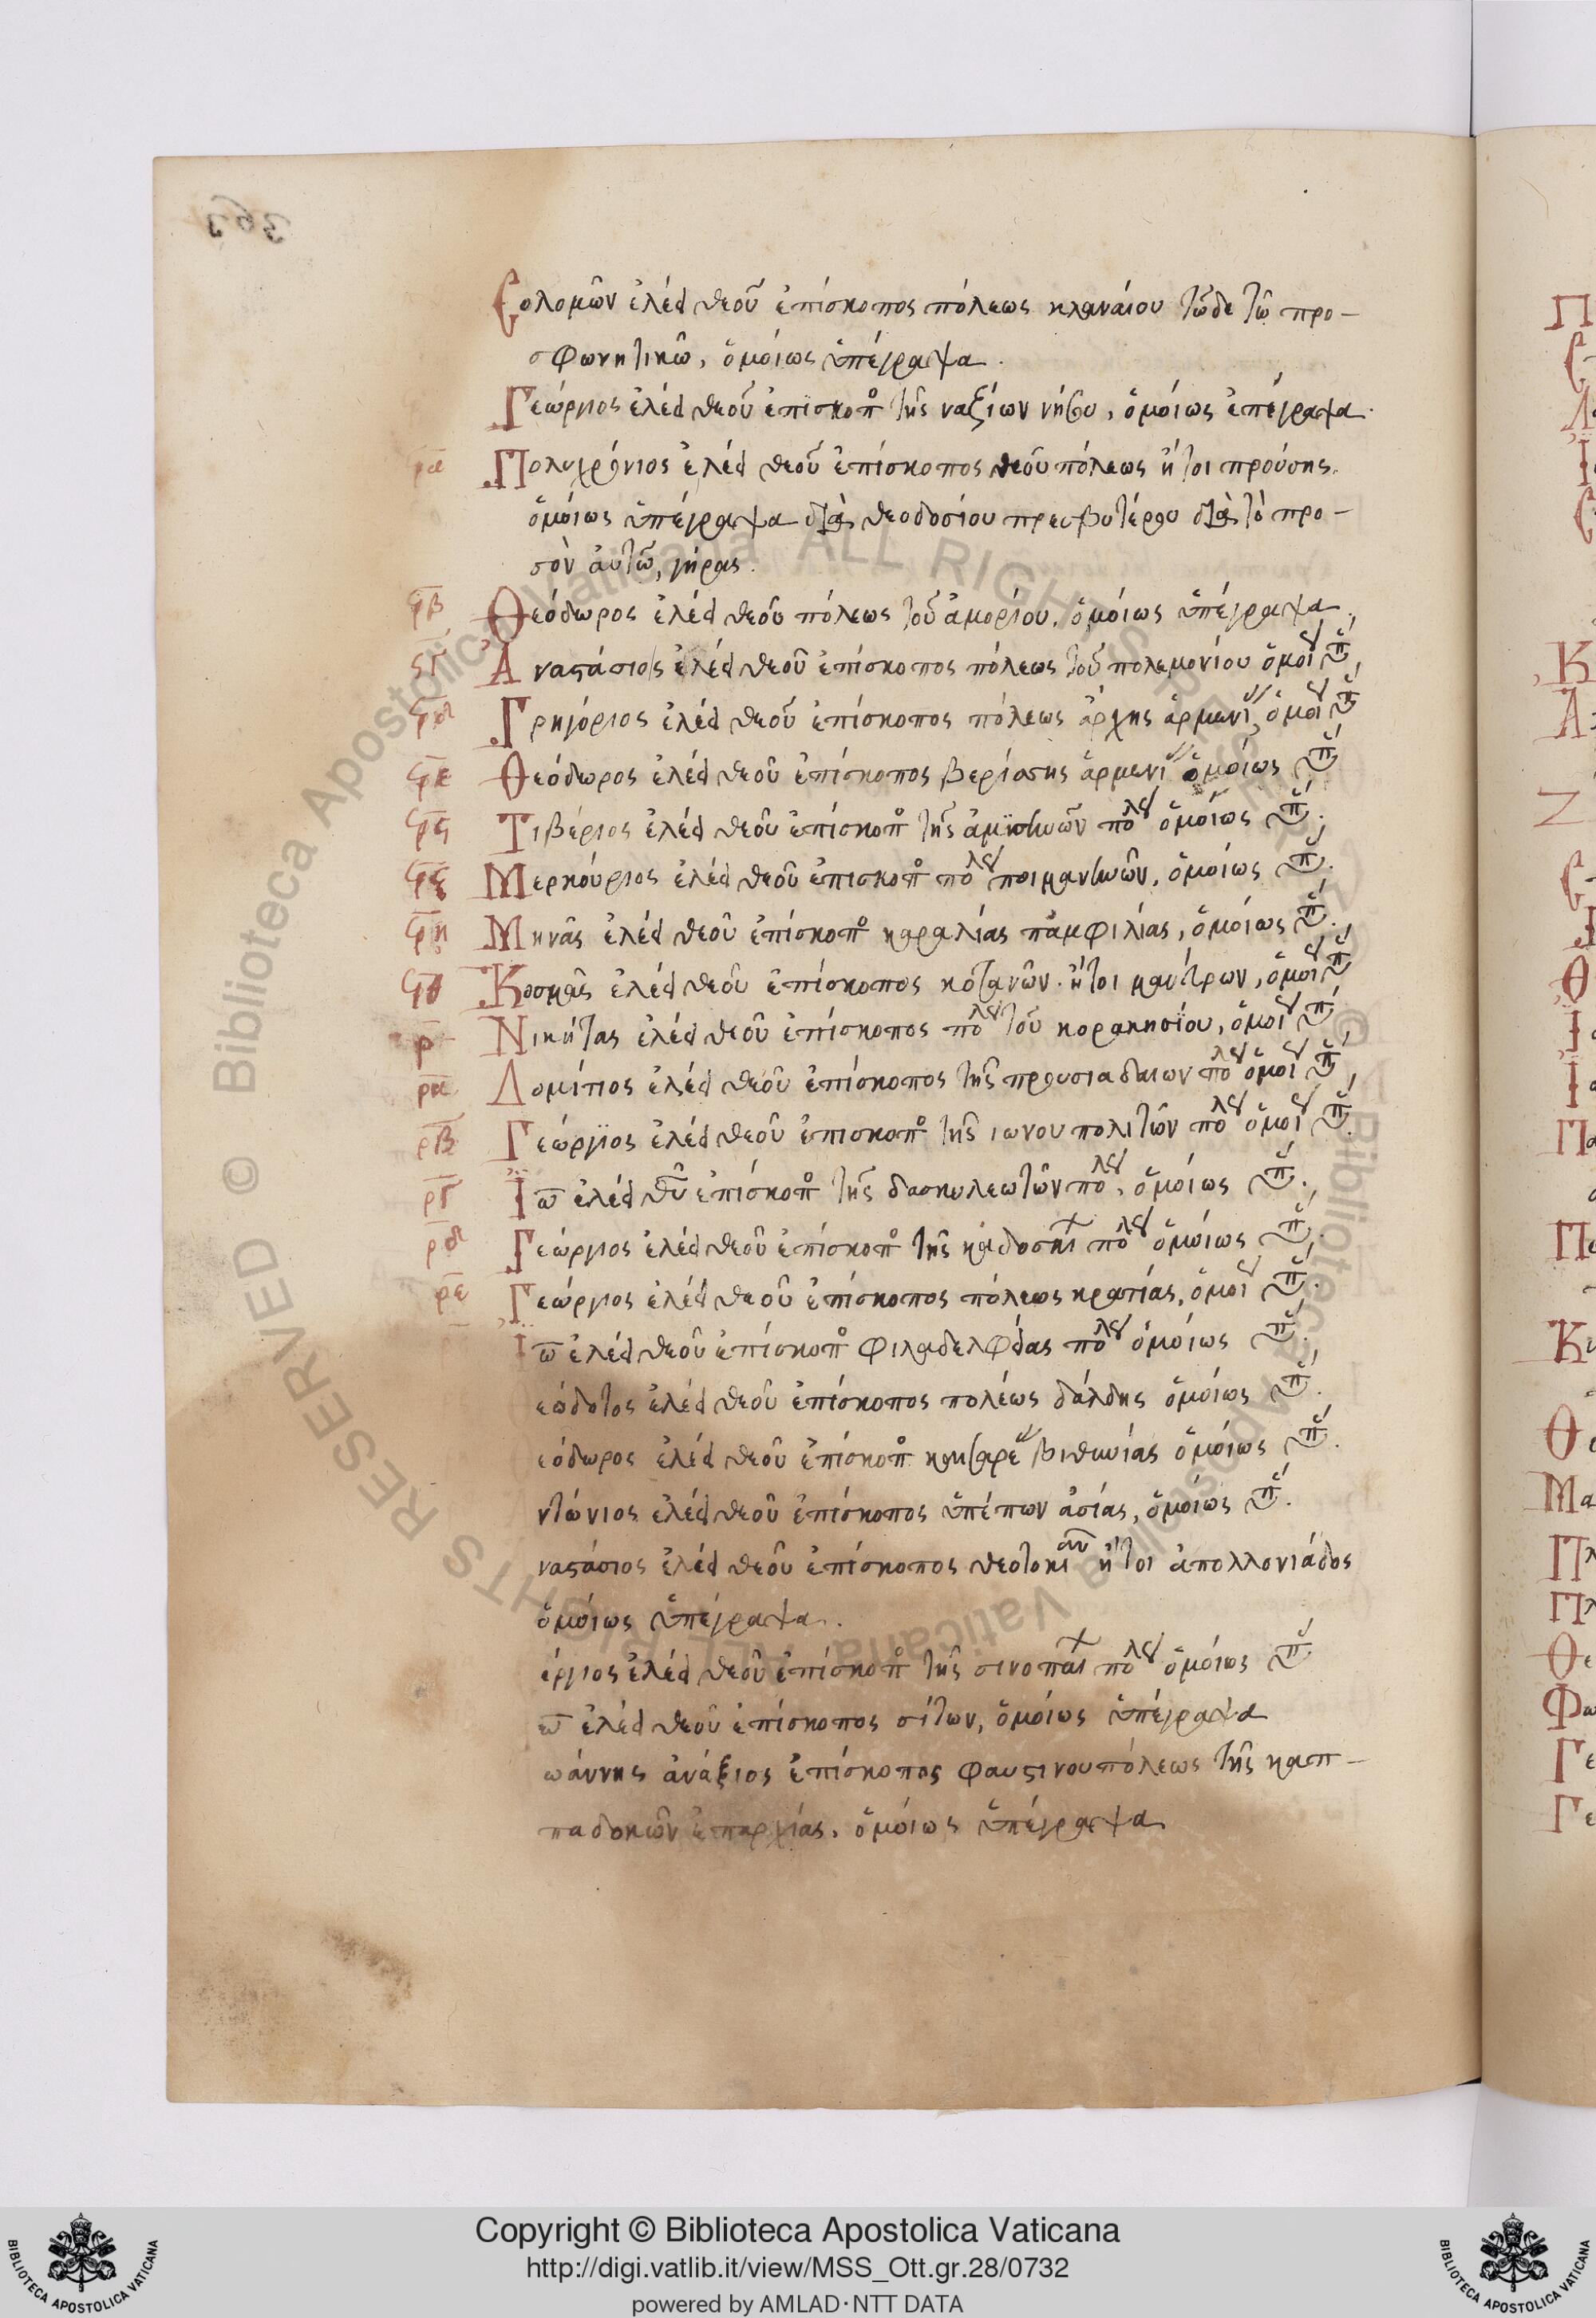 Σολομῶν ἐλέει θεοῦ ἐπίσκοπος πόλεως κλαναίου τῶδε τῶ προ–
σφωνητικῶ, ὁμοίως ὑπέγραψα.
Γεώργιος ἐλέει θεοῦ ἐπίσκοπο τῆς ναξίων νήσου, ὁμοίως ἐπέγραψα.
Πολυχρόνιος ἐλέει θεοῦ ἐπίσκοπος θεοῦ πόλεως ἤτοι προύσης.
ὁμοίως ὑπέγραψα διὰ θεοδοσίου πρεσβυτέρου διὰ τὸ προ–
σὸν ἀυτῶ, γήρας.
ϟβ Θεόδωρος ἐλέει θεοῦ πόλεως τοῦ ἀμορίου, ὁμοίως ὑπέγραψα.
ϟγ Ἀναστάσιος ἐλέει θεοῦ ἐπίσκοπος πόλεως τοῦ πολεμονίου ὁμοί ὑπ
ϟδ Γρηγόριος ἐλέει θεοῦ ἐπίσκοπος πόλεως ἀρχης ἀρμενί, ὁμοί ὑπ
ϟε Θεόδωρος ἐλέει θεοῦ ἐπίσκοπος βερίασης ἀρμενί ὁμοίως ὑπ
ϟς Τιβέριος ἐλέει θεοῦ ἐπίσκοπο τῆς ἀμϊσηνῶν πόλ ὁμοίως ὑπ
ϟζ Μερκούριος ἐλέει θεοῦ ἐπισκοπο πόλ ποιμανηνῶν, ὁμοίως ὑπ
ϟη Μηνᾶς ἐλέει θεοῦ ἐπίσκοπο καραλίας παμφιλίας, ὁμοίως ὑπ
ϟθ Κοσμᾶς ἐλέει θεοῦ ἐπίσκοπος κότανῶν. ἤτοι μανίτρων, ὁμοί ὑπ
ρ Νικήτας ἐλέει θεοῦ ἐπίσκοπος πόλ τοῦ κορακησίου, ὁμοί ὑπ
ρα Δομίτιος ἐλέει θεοῦ ἐπίσκοπος τῆς προυσιαδαιων πόλ ὁμοί ὑπ
ρβ Γεώργϊος ἐλέει θεοῦ ἐπισκοπο τῆς ιωνουπολιτῶν πόλ ὁμοί ὑπ
ργ Ἰω ἐλέει θυ ἐπίσκοπο τῆς δασκυλεωτῶν πόλ, ὁμοίως ὑπ
ρδ Γεώργιος ἐλέει θεοῦ ἐπίσκοπο τῆς καδοσηι πόλ ὁμοίως ὑπ
ρε Γεώργιος ἐλέει θεοῦ ἐπίσκοπος πόλεως κρατίας, ὁμοί ὑπ
Ἰω ἐλέει θεοῦ ἐπίσκοπο φιλαδελφείας πόλ ὁμοίως ὑπ
εόδοτος ἐλέει θεοῦ ἐπίσκοπος πολέως δάλδης ὁμοίως ὑπ
εόδωρος ἐλέει θεοῦ ἐπίσκοπο καισαρέ βιθυνίας ὁμοίως ὑπ
ντώνιος ἐλέει θεοῦ ἐπίσκοπος ὑπέπων ἀσίας, ὁμοίως ὑπ
ναστάσιος ἐλέει θεοῦ ἐπίσκοπος θεοτοκιαν ἤτοι ἀπολλονιάδος
ὁμοίως ὑπέγραψα.
έργιος ἐλέει θεοῦ ἐπίσκοπο τῆς σινοπαι πόλ ὁμοίως ὑπ
ω ἐλέει θεοῦ ἐπίσκοπος σίτων, ὁμοίως ὑπέγραψα
ωάννης ἀνάξιος ἐπίσκοπος φαυστινουπόλεως τῆς καπ–
παδοκῶν ἐπαρχίας, ὁμοίως ὑπέγραψα
© Biblioteca Apostolica Vaticana ALL RIGHTS RESERVED
Copyright © Biblioteca Apostolica Vaticana
http://digi.vatlib.it/view/MSS_Ott.gr.28/0732
powered by AMLAD·NTT DATA
BIBLIOTECA APOSTOLICA VATICANA
BIBLIOTECA APOSTOLICA VATICANA